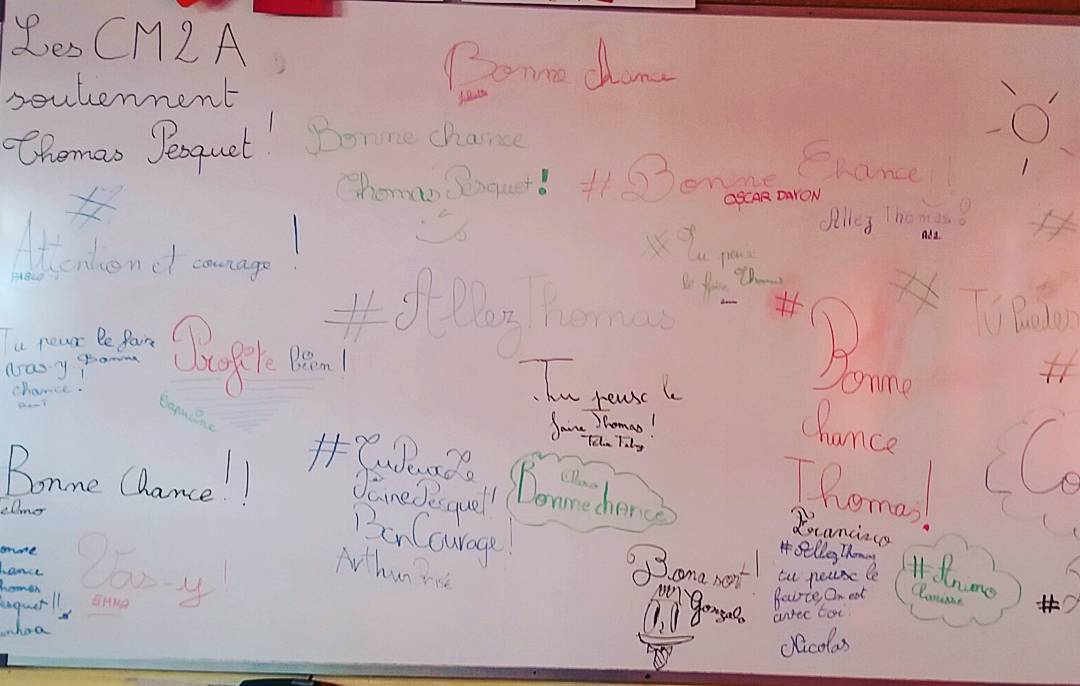 Les CM2A
soutiennent
Thomas Pesquet !
Bonne chance
Bonne chance
Thomas Pesquet !
# Bonne Chance !
OSCAR DAYON
Allez Thomas !
Ada
#
Attention et courage !
PABLO
# Tu peux
le faire Thomas
# Allez Thomas
#
Tú Puedes
#
Tu peux le faire
vas-y Bonne
chance !
Profite bien !
Capucine
Tu peux le
faire Thomas !
# Bonne
chance
Thomas !
Francisco
Bonne Chance !!
Telmo
#TuPeuxLe
FairePesquet !
BonCourage !
Arthur
Clara
Bonne chance
onne
hance
homas
esquet !!
Vas-y !
EMMA
Bona sort !
Gonzalo
#AllezThomas
tu peux le
faire On est
avec toi
Nicolas
#Animo
Clarisse
Co
#